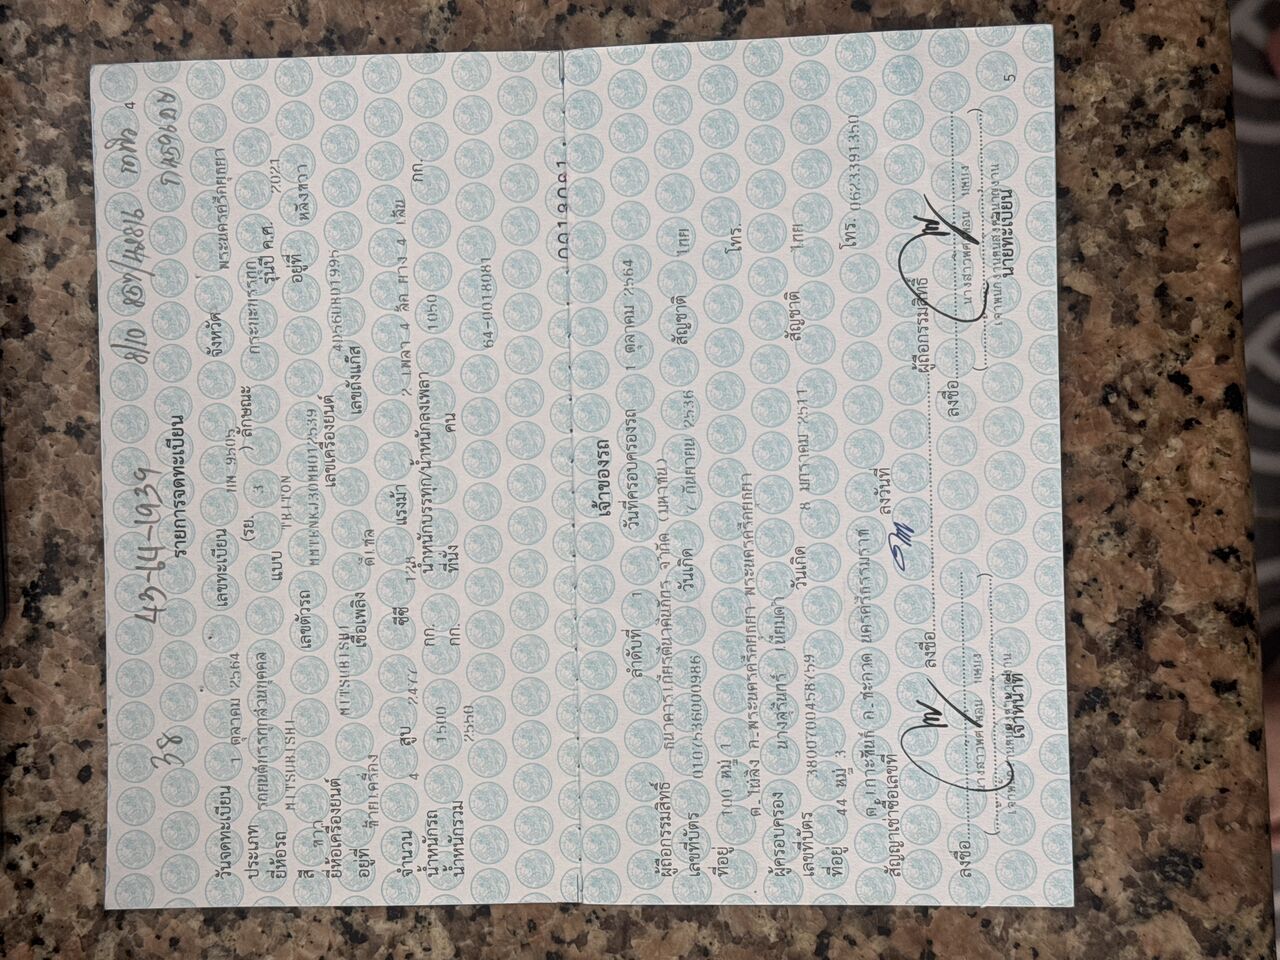 43-64-1939
38
4
รายการจดทะเบียน
วันจดทะเบียน 1 ตุลาคม 2564 เลขทะเบียน 9505 จังหวัด พระนครศรีอยุธยา
ประเภท รถยนต์บรรทุกส่วนบุคคล (รย. 3 ) ลักษณะ กระบะบรรทุก
ยี่ห้อรถ MITSUBISHI แบบ TRITON รุ่นปี ค.ศ. 2021
สี ขาว เลขตัวรถ อยู่ที่ หลังขวา
ยี่ห้อเครื่องยนต์ MITSUBISHI เลขเครื่องยนต์
อยู่ที่ ซ้ายเครื่อง เชื้อเพลิง ดีเซล เลขถังแก๊ส
จำนวน 4 สูบ 2477 ซีซี 128 แรงม้า 2 เพลา 4 ล้อ ยาง 4 เส้น
น้ำหนักรถ 1500 กก. น้ำหนักบรรทุก/น้ำหนักลงเพลา 1050 กก.
น้ำหนักรวม 2550 กก. ที่นั่ง คน
64-0018081
เจ้าของรถ
ลำดับที่ 1 วันที่ครอบครองรถ 1 ตุลาคม 2564
ผู้ถือกรรมสิทธิ์ ธนาคารเกียรตินาคินภัทร จำกัด (มหาชน)
เลขที่บัตร 0107536000986 วันเกิด 7 กันยายน 2536 สัญชาติ ไทย
ที่อยู่ 100 หมู่ 1
ต.ไผ่ลิง อ.พระนครศรีอยุธยา พระนครศรีอยุธยา โทร.
ผู้ครอบครอง นางสุรินทร์
เลขที่บัตร 3800700458759 วันเกิด 8 มกราคม 2511 สัญชาติ ไทย
ที่อยู่ 44 หมู่ 3
นครศรีธรรมราช โทร. 0623391350
สัญญาเช่าซื้อเลขที่ ลงวันที่
ลงชื่อ ผู้ถือกรรมสิทธิ์
ลงชื่อ ลงชื่อ
เจ้าหน้าที่ นายทะเบียน
5